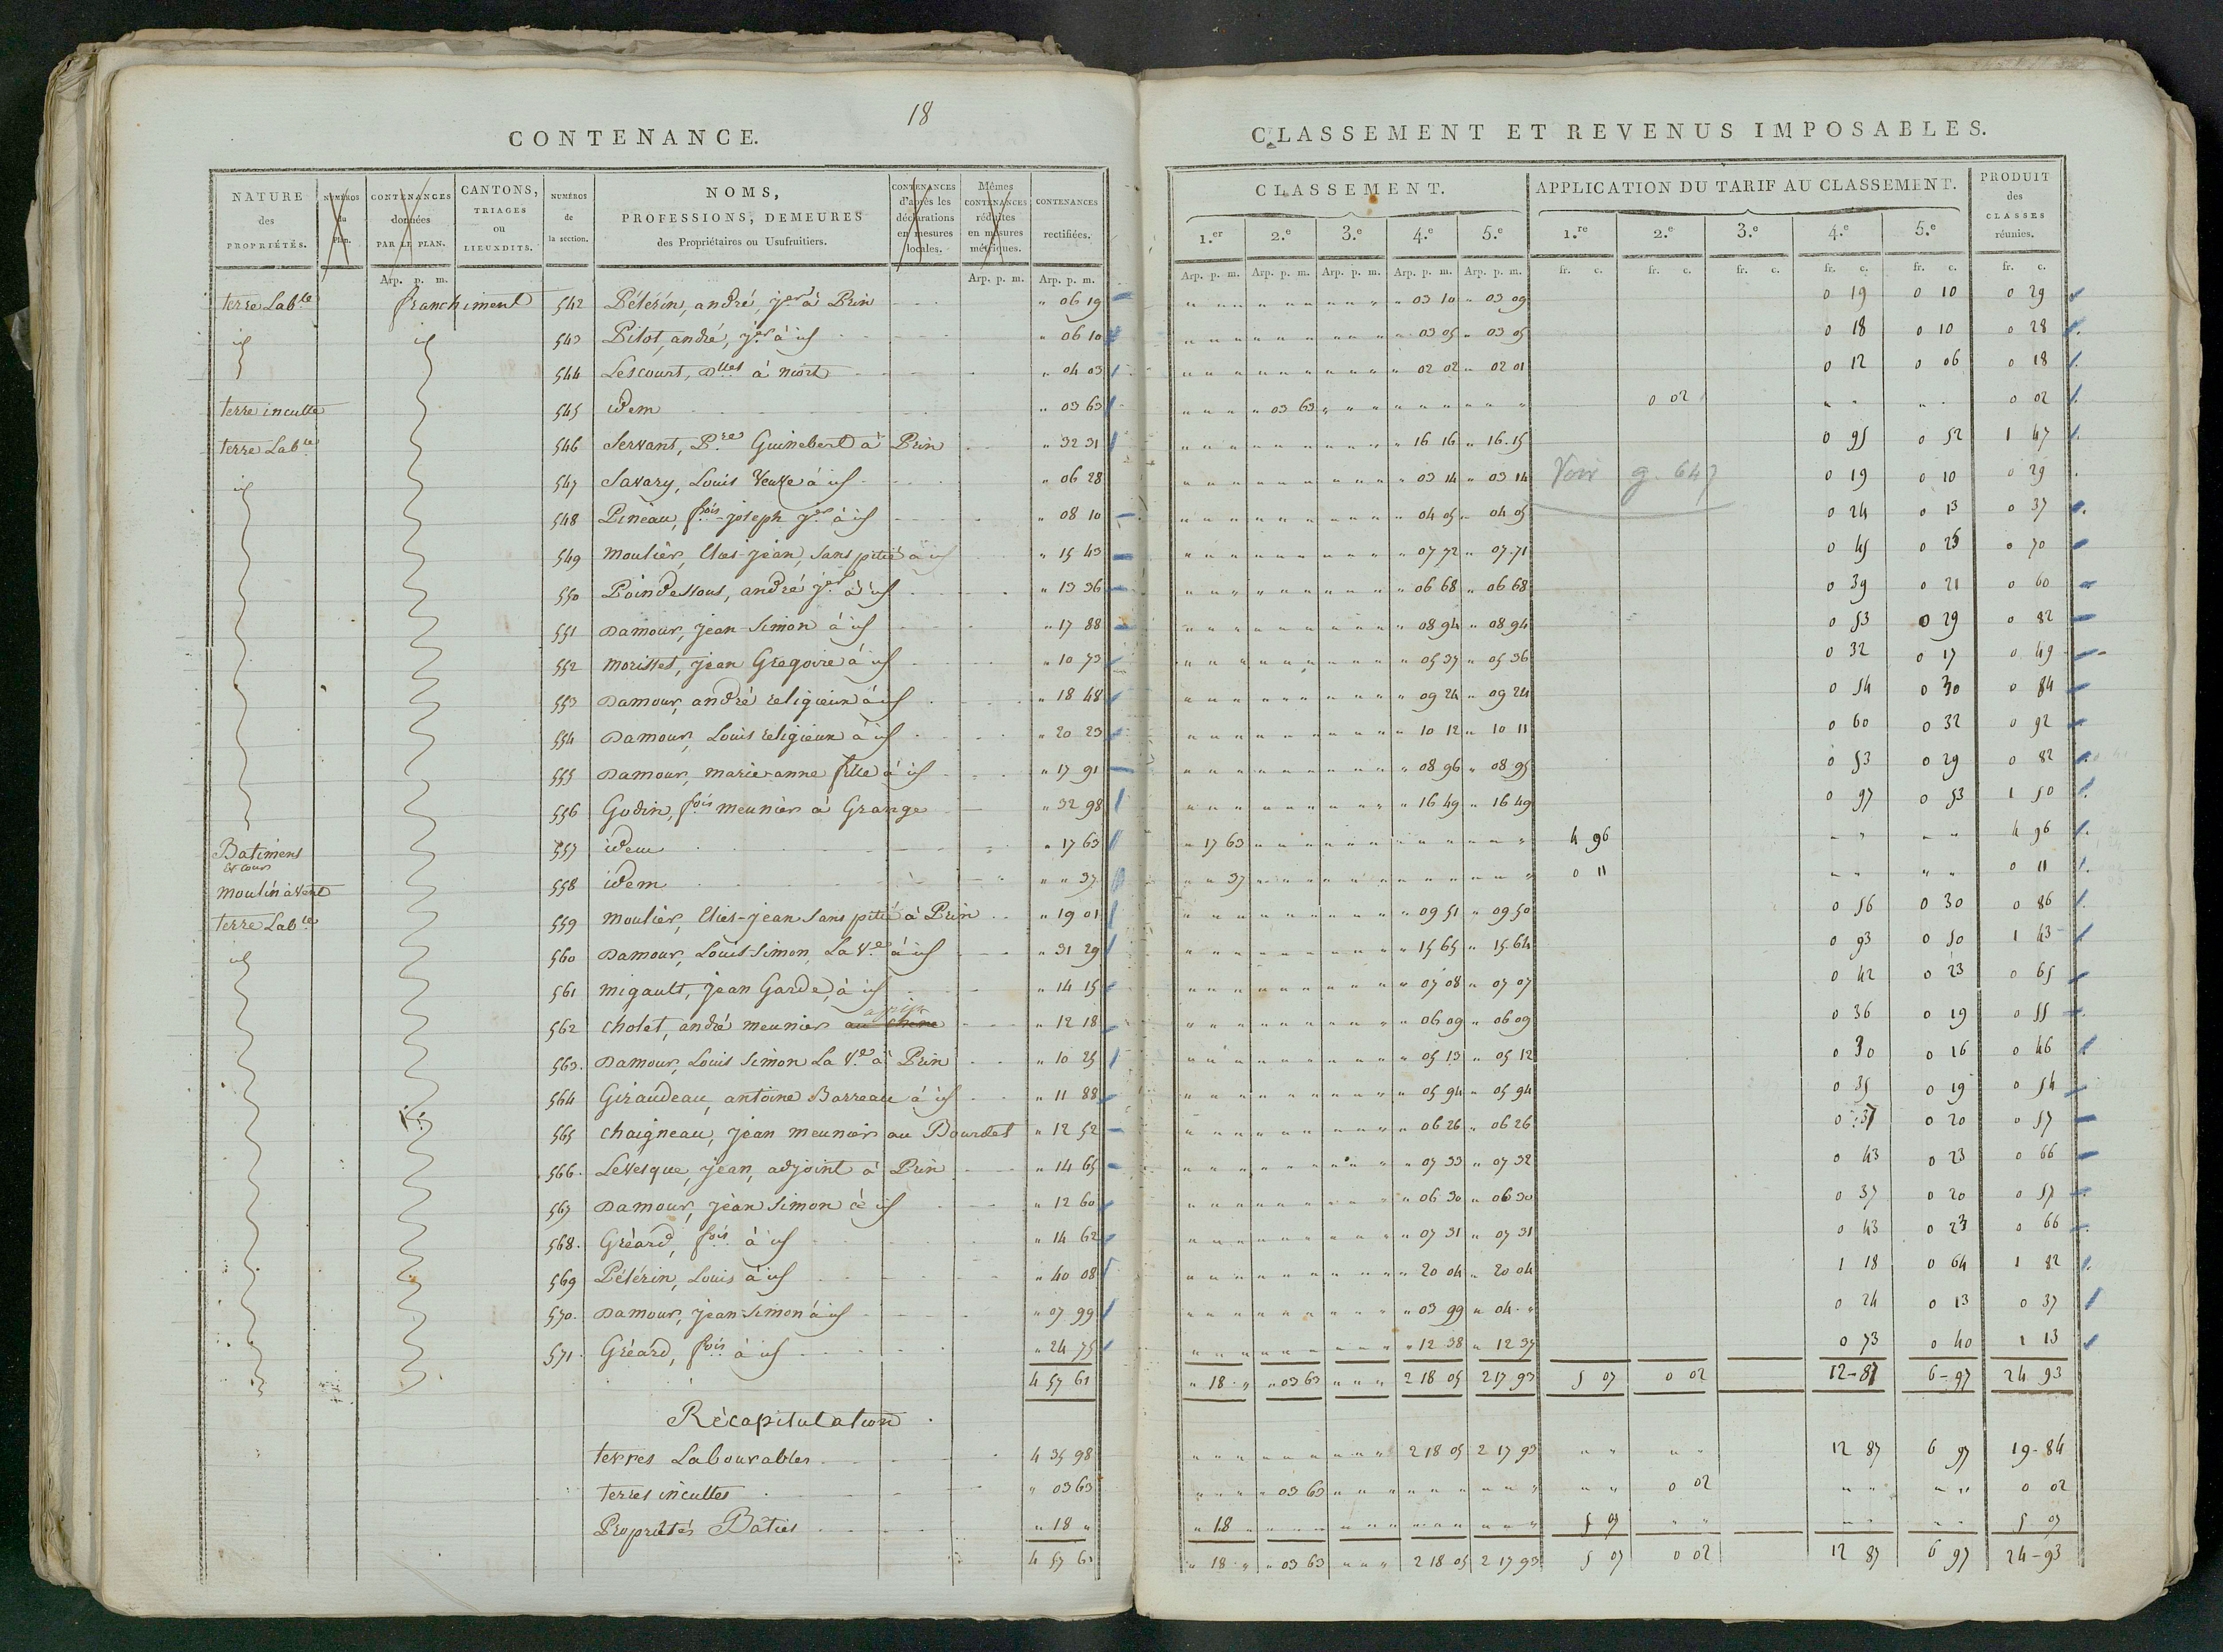 18
CONTENANCE.
CLASSEMENT ET REVENUS IMPOSABLES.
NATURE des PROPRIÉTÉS. NUMÉROS du Plan. CONTENANCES données PAR LE PLAN. CANTONS, TRIAGES ou LIEUXDITS. NUMÉROS de la section. NOMS, PROFESSIONS, DEMEURES des Propriétaires ou Usufruitiers. CONTENANCES d'après les déclarations en mesures locales. Mêmes CONTENANCES réduites en mesures métriques. CONTENANCES rectifiées.
CLASSEMENT. APPLICATION DU TARIF AU CLASSEMENT. PRODUIT des CLASSES réunies.
1.er 2.e 3.e 4.e 5.e 1.re 2.e 3.e 4.e 5.e
Arp. p. m. Arp. p. m. Arp. p. m. Arp. p. m. Arp. p. m. Arp. p. m. Arp. p. m. Arp. p. m. fr. c. fr. c. fr. c. fr. c. fr. c. fr. c.
terre Lab.le franchiment 542 Pélérin, andré, j.er à Prin " 06 19 " 03 10 " 03 09 0 19 0 10 0 29
id id 543 Pitot, andré, j.er à id " 06 10 " 03 05 " 03 05 0 18 0 10 0 28
544 Lescourt, Dlles à niort " 04 03 " 02 02 " 02 01 0 12 0 06 0 18
terre inculte 545 idem " 03 63 " 03 63 0 02 0 02
terre Lab.le 546 Servant, P.re Guinebert à Prin " 32 31 " 16 16 " 16.15 0 95 0 52 1 47
id 547 Savary, Louis Veuze à id " 06 28 " 03 14 " 03 14 Voir g. 647 0 19 0 10 0 29
548 Pineau, f.ois joseph j.er à id " 08 10 " 04 05 " 04 05 0 24 0 13 0 37
549 moulier, Elies-jean, sans pitié à id " 15 43 " 07 72 " 07.71 0 45 0 25 0 70
550 Poindessous, andré j.er à id " 13 36 " 06 68 " 06 68 0 39 0 21 0 60
551 Damour, jean Simon à id " 17 88 " 08 94 " 08 94 0 53 0 29 0 82
552 morisset, jean Gregoire à id " 10 73 " 05 37 " 05 36 0 32 0 17 0 49
553 Damour, andré religieux à id " 18 48 " 09 24 " 09 24 0 54 0 30 0 84
554 Damour, Louis religieux à id " 20 23 " 10 12 " 10 11 0 60 0 32 0 92
555 Damour, marie-anne fille à id " 17 91 " 08 96 " 08 95 0 53 0 29 0 82
556 Godin, f.ois meunier à Grange " 32 98 " 16 49 " 16 49 0 97 0 53 1 50
Batimens et cour 557 idem " 17 63 " 17 63 4 96 4 96
moulin à vent 558 idem " " 37 " " 37 0 11 0 11
terre Lab.le 559 moulier, Elies-jean sans pitié à Prin " 19 01 " 09 51 " 09 50 0 56 0 30 0 86
id 560 Damour, Louis Simon, La V.e à id " 31 29 " 15 65 " 15 64 0 93 0 50 1 43
561 migault, jean Garde, à id " 14 15 " 07 08 " 07 07 0 42 0 23 0 65
562 cholet, andré meunier au chene " 12 18 " 06 09 " 06 09 0 36 0 19 0 55
563. Damour, Louis Simon La V.e à Prin " 10 25 " 05 13 " 05 12 0 30 0 16 0 46
564 Giraudeau, antoine Barreau à id " 11 88 " 05 94 " 05 94 0 35 0 19 0 54
565 chaigneau, jean meunier au Bourdet " 12 52 " 06 26 " 06 26 0 37 0 20 0 57
566. Levesque, jean, adjoint à Prin " 14 65 " 07 33 " 07 32 0 43 0 23 0 66
567 Damour, jean Simon à id " 12 60 " 06 30 " 06 30 0 37 0 20 0 57
568. Gréard, f.ois à id " 14 62 " 07 31 " 07 31 0 43 0 23 0 66
569 Pélérin, Louis à id " 40 08 " 20 04 " 20 04 1 18 0 64 1 82
570. Damour, jean Simon à id " 07 99 " 03 99 " 04 " 0 24 0 13 0 37
571. Gréard, f.ois à id " 24 75 " 12 38 " 12 37 0 73 0 40 1 13
4 57 61 " 18 " " 03 63 " " " 2 18 05 2 17 93 5 07 0 02 12-87 6-97 24 93
Récapitulation.
terres Labourables 4 35 98 2 18 05 2 17 93 12 87 6 97 19-84
terres incultes " 03 63 " 03 63 0 02 0 02
Propriétés Bâties " 18 " " 18 " 5 07 5 07
4 57 61 " 18 " " 03 63 " " " 2 18 05 2 17 93 5 07 0 02 12 87 6 97 24-93